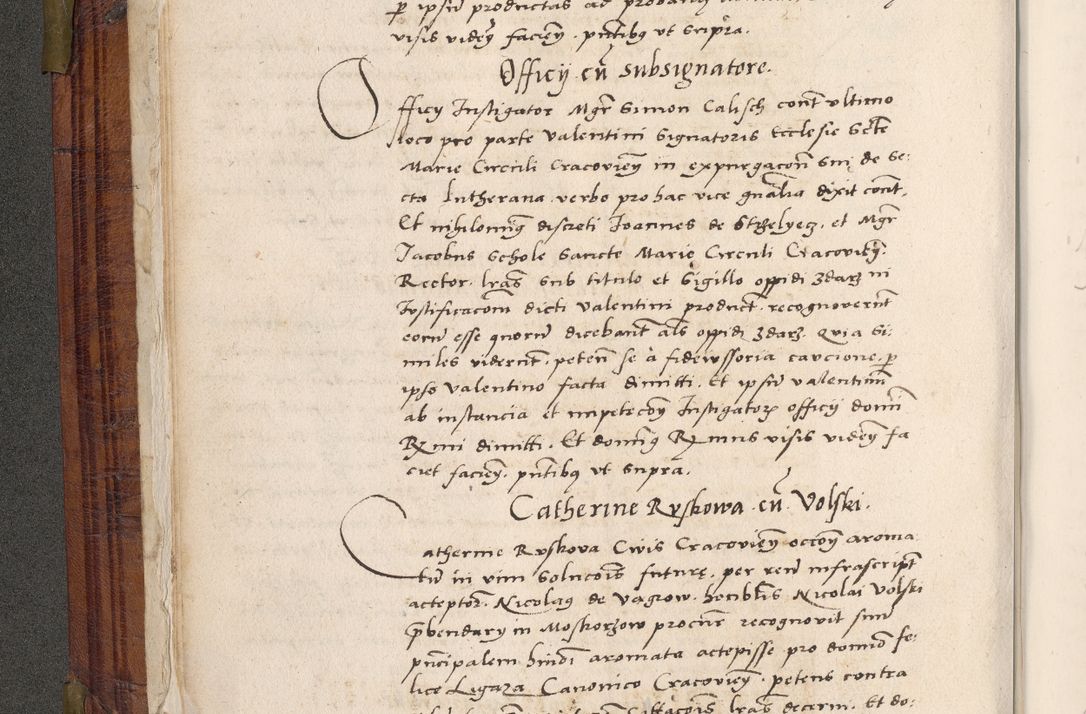 p ipsū productas ad
visis vidēn facieñ. pñtibq vt supra.
Officij cū subsignatore.
Officij Instigator Mgr̄ Simon Calisch cont̄ vltimo
loco pro parte Valentini Signatoris Ecclesie Scte
Marie Circuli Cracovieñ in expurgacōn̄ sui de se:
cta lutherana verbo pro hac vice gn̄alia dixit cont̄.
Et nihilominq discreti Joannes de Sthelyecz, et Mgr̄
Jacobus Schole Sancte Marie Circuli Cracovieñ.
Rector. lrās sub titulo et Sigillo oppidi Zdarz ni
Justificacoem̄ dicti Valentini product. recognoverūt
eorū esse quorū dicebant als oppidi Zdarz. Quia si:
miles viderūt. peteñ se à fideiussoria caucione. p
ipso Valentino facta dimitti. Et ipsū valentinū
ab instancia et impeteconē Instigatorz officij domī
Rzmi dimitti. Et dominq Rzmus visis vidēn fa
ciet facieñ. pñtibq vt supra.
Catherine Ryskowa cū Volski.
Catherine Ryskova Civis Cracovieñ occoñ aroma
tū in vim solucois future. per reū infrascript
acceptor. Nicolaq de Vagrow. honbilis Nicolai Volski
Prbendary in Moskorzow procūr recognovit suū
principalem hmōi aromata accepisse pro domino fe:
lice Ligaza Canonico Cracovieñ. petens contra
lrās decerni. Et do: